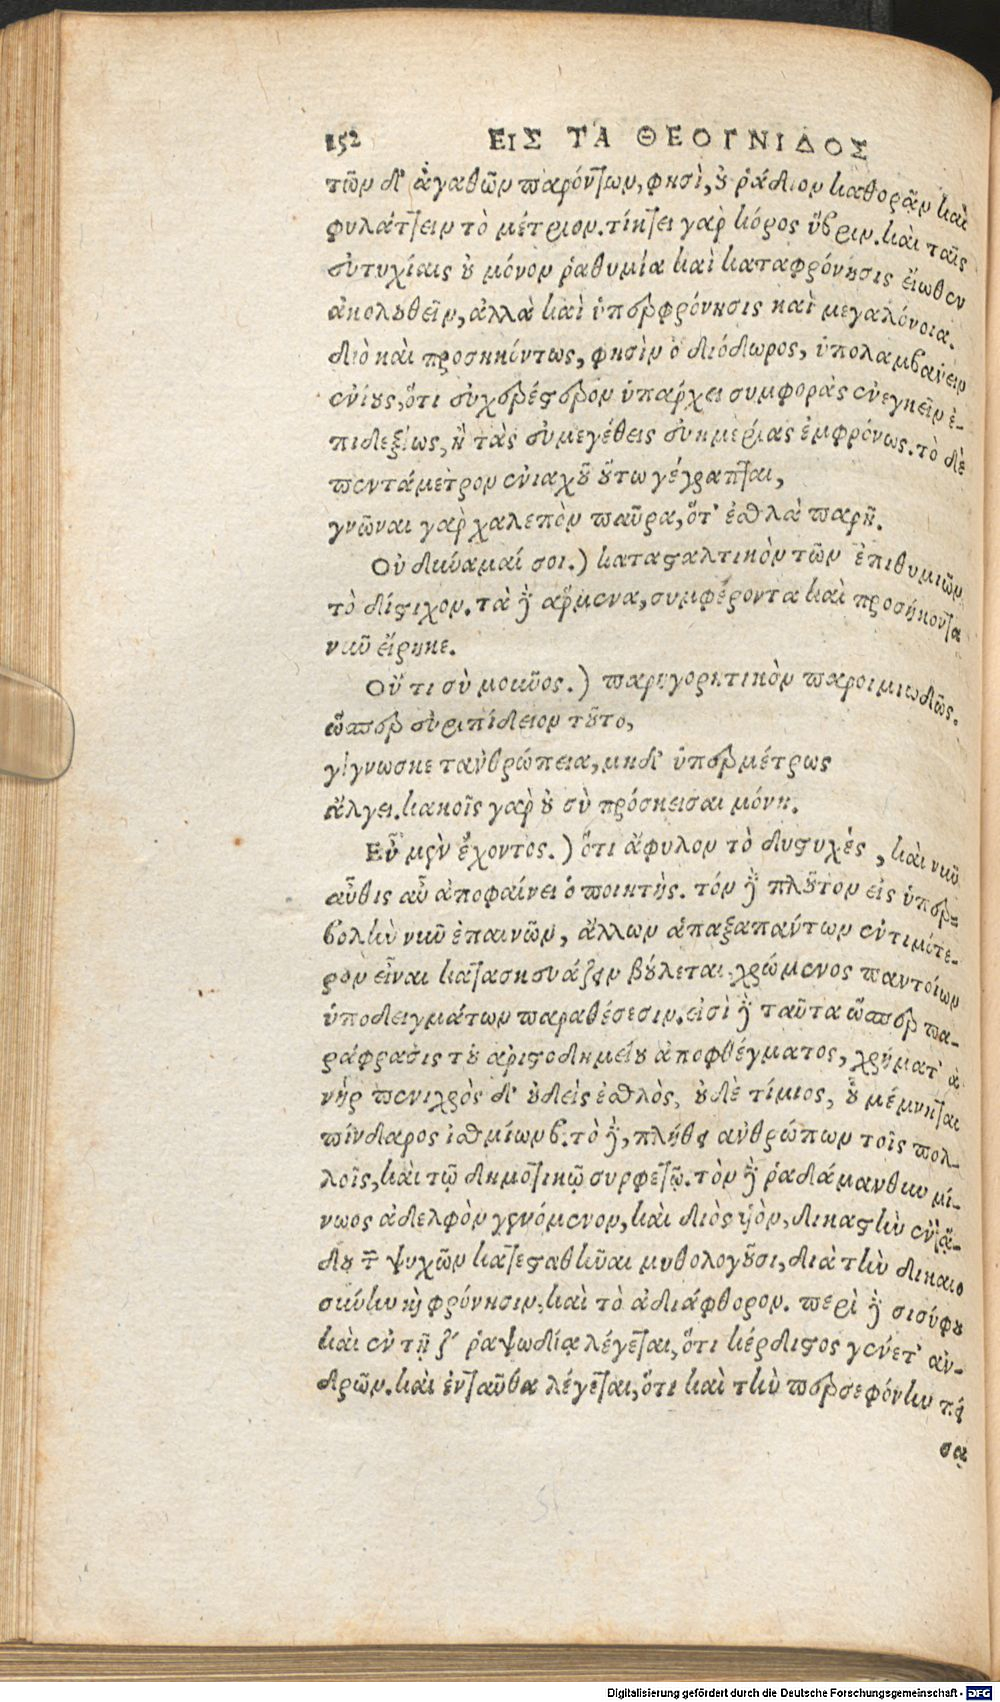 152 ΕΙΣ ΤΑ ΘΕΟΓΝΙΔΟΣ
τῶν δ' ἀγαθῶν παρόντων, φησὶ, οὐ ῥᾴδιον καθορᾷν καὶ
φυλάττειν τὸ μέτριον. τίκτει γαρ κόρος ὕβριν. καὶ ταῖς
εὐτυχίαις οὐ μόνον ῥαθυμία καὶ καταφρόνησις εἴωθεν
ἀκολουθεῖν, ἀλλὰ καὶ ὑπερφρόνησις καὶ μεγαλόνοια.
διὸ καὶ προσηκόντως, φησὶν ὁ διόδωρος, ὑπολαμβανειν
ἐνίους, ὅτι εὐχερέστερον ὑπάρχει συμφορὰς ἐνεγκεῖν ἐ-
πιδεξίως, ἢ τὰς εὐμεγέθεις εὐημερίας ἐμφρόνως. τὸ δὲ
πεντάμετρον ἐνιαχοῦ οὕτω γέγραπται,
γνῶναι γὰρ χαλεπὸν παῦρα, ὅτ' ἐσθλὰ παρῇ.
Οὐ δύναμαί σοι.) κατασταλτικὸν τῶν ἐπιθυμιῶν
τὸ δίστιχον. τὰ δὲ ἄρμενα, συμφέροντα καὶ προσήκοντα
νῦν εἴρηκε.
Οὔ τι σὺ μοῦνος.) παρηγορητικὸν παροιμιωδῶς.
ὥσπερ εὐριπίδειον τοῦτο,
γίγνωσκε τανθρώπεια, μηδ' ὑπερμέτρως
ἄλγει. κακοῖς γὰρ οὐ σὺ πρόσκεισαι μόνη.
Εὖ μὲν ἔχοντος.) ὅτι ἄφιλον τὸ δυστυχὲς, καὶ νῦν
αὖθις αὖ ἀποφαίνει ὁ ποιητὴς. τόν δὲ πλοῦτον εἰς ὑπερ-
βολὴν νῦν ἐπαινῶν, ἄλλων ἁπαξαπάντων ἐντιμότε-
ρον εἶναι κατασκευάζειν βούλεται, χρώμενος παντοίων
ὑποδειγμάτων παραθέσεσιν. εἰσὶ δὲ ταῦτα ὥσπερ πα-
ράφρασις τοῦ ἀριστοδημείου ἀποφθέγματος, χρήματ' ἀ
νὴρ πενιχρὸς δ' οὐδεὶς ἐσθλὸς, οὐδὲ τίμιος, οὗ μέμνηται
πίνδαρος ἰσθμίων β. τὸ δὲ, πλήθει ἀνθρώπων τοῖς πολ-
λοῖς, καὶ τῷ δημοτικῷ συρφετῷ. τὸν δὲ ῥαδάμανθυν μί-
νωος ἀδελφὸν γενόμενον, καὶ διὸς ὑιὸν, δικαστὴν ἐν ᾅ-
δου τῶν ψυχῶν κατεσταθῆναι μυθολογοῦσι, διὰ τὴν δικαιο
σύνην καὶ φρόνησιν, καὶ τὸ ἀδιάφθορον. περὶ δὲ σισύφου
καὶ ἐν τῇ ζ' ῥαψωδίᾳ λέγεται, ὅτι κέρδιστος γένετ' ἀν-
δρῶν. καὶ ἐνταῦθα λέγεται, ὅτι καὶ τὴν περσεφόνην πεί
σα
Digitalisierung gefördert durch die Deutsche Forschungsgemeinschaft - DFG